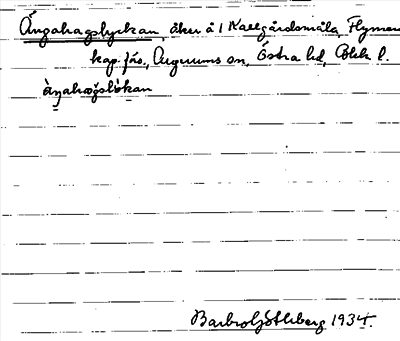 Ängahagslyckan, åker å 1 Kallgårdsmåla, Flymen
kap. förs., Augerums sn, Östra hd, Blek. l.
Barbro Göthberg 1934.